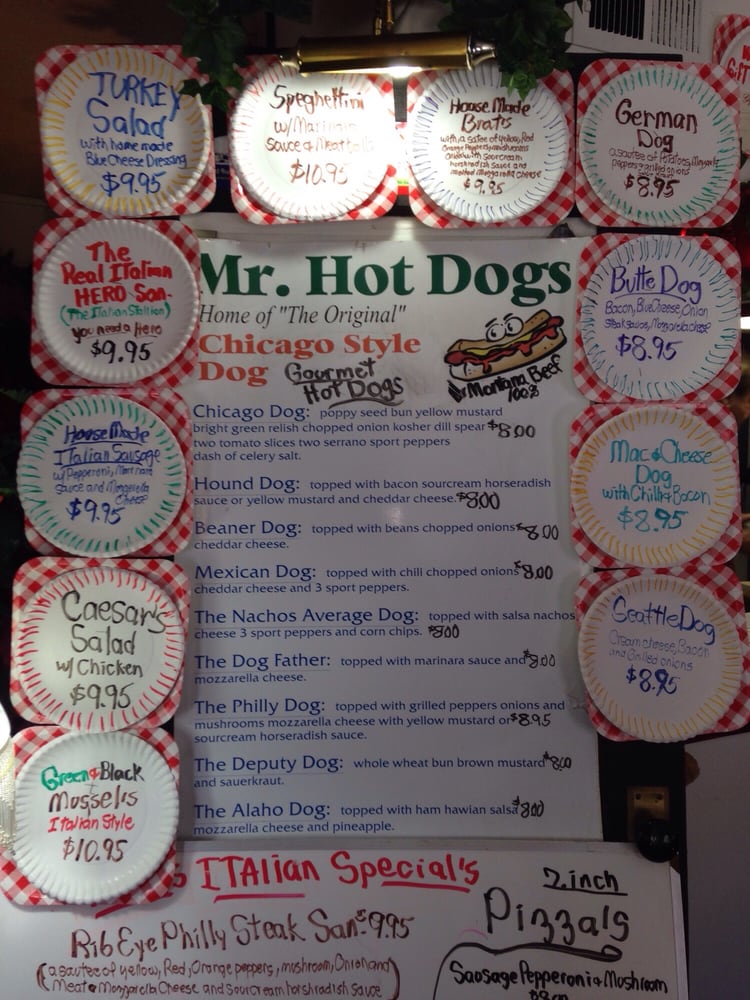 TURKEY
Salad
with home made
Blue Cheese Dressing
$9.95
Speghettini
w/Marinara
Sauce & Meatballs
$10.95
House Made
Brats
with a sautee of yellow, Red
Orange Peppers, mushrooms
Onions with sourcream
horshradish sauce and
melted Mozzarella cheese
$9.95
German
Dog
a sautee of Potatoes, Mozzarella
peppers grilled onions
$8.95
The
Real Italian
HERO San.
(The Italian Stallion)
you need a Hero
$9.95
House Made
Italian Sausage
w/ Pepperoni, Marinara
sauce and Mozzarella
Cheese
$9.95
Caesars
Salad
w/ Chicken
$9.95
Green & Black
Musselss
Italian Style
$10.95
Mr. Hot Dogs
Home of "The Original"
Chicago Style
Dog
Gourmet
Hot Dogs
Montana Beef
100%
Chicago Dog: poppy seed bun yellow mustard
bright green relish chopped onion kosher dill spear $8.00
two tomato slices two serrano sport peppers
dash of celery salt.
Hound Dog: topped with bacon sourcream horseradish
sauce or yellow mustard and cheddar cheese. $8.00
Beaner Dog: topped with beans chopped onions $8.00
cheddar cheese.
Mexican Dog: topped with chili chopped onions $8.00
cheddar cheese and 3 sport peppers.
The Nachos Average Dog: topped with salsa nachos
cheese 3 sport peppers and corn chips. $8.00
The Dog Father: topped with marinara sauce and $8.00
mozzarella cheese.
The Philly Dog: topped with grilled peppers onions and
mushrooms mozzarella cheese with yellow mustard or $8.95
sourcream horseradish sauce.
The Deputy Dog: whole wheat bun brown mustard $8.00
and sauerkraut.
The Alaho Dog: topped with ham hawian salsa $8.00
mozzarella cheese and pineapple.
Butte Dog
Bacon, Blue Cheese, Onion
Steak sauce, Mozzarela cheese
$8.95
Mac & Cheese
Dog
with Chilli & Bacon
$8.95
Seattle Dog
Cream cheese, Bacon
and Grilled onions
$8.95
ITAlian Special's
Rib Eye Philly Steak San. $9.95
(a sautee of yellow, Red, Orange peppers, mushroom, Onion and
Meat & Mozzarella Cheese and sourcream horshradish sauce
7 inch
Pizza's
Sausage Pepperoni & Mushroom